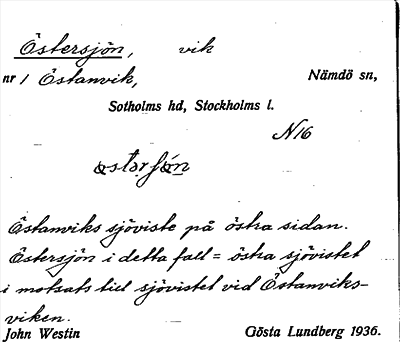 Östersjön, vik
nr 1 Östanvik, Nämdö sn,
Sotholms hd, Stockholms l.
N16
Östanviks sjöviste på östra sidan.
Östersjön i detta fall = östra sjövistet
i motsats till sjövistet vid Östanviks-
viken.
John Westin Gösta Lundberg 1936.